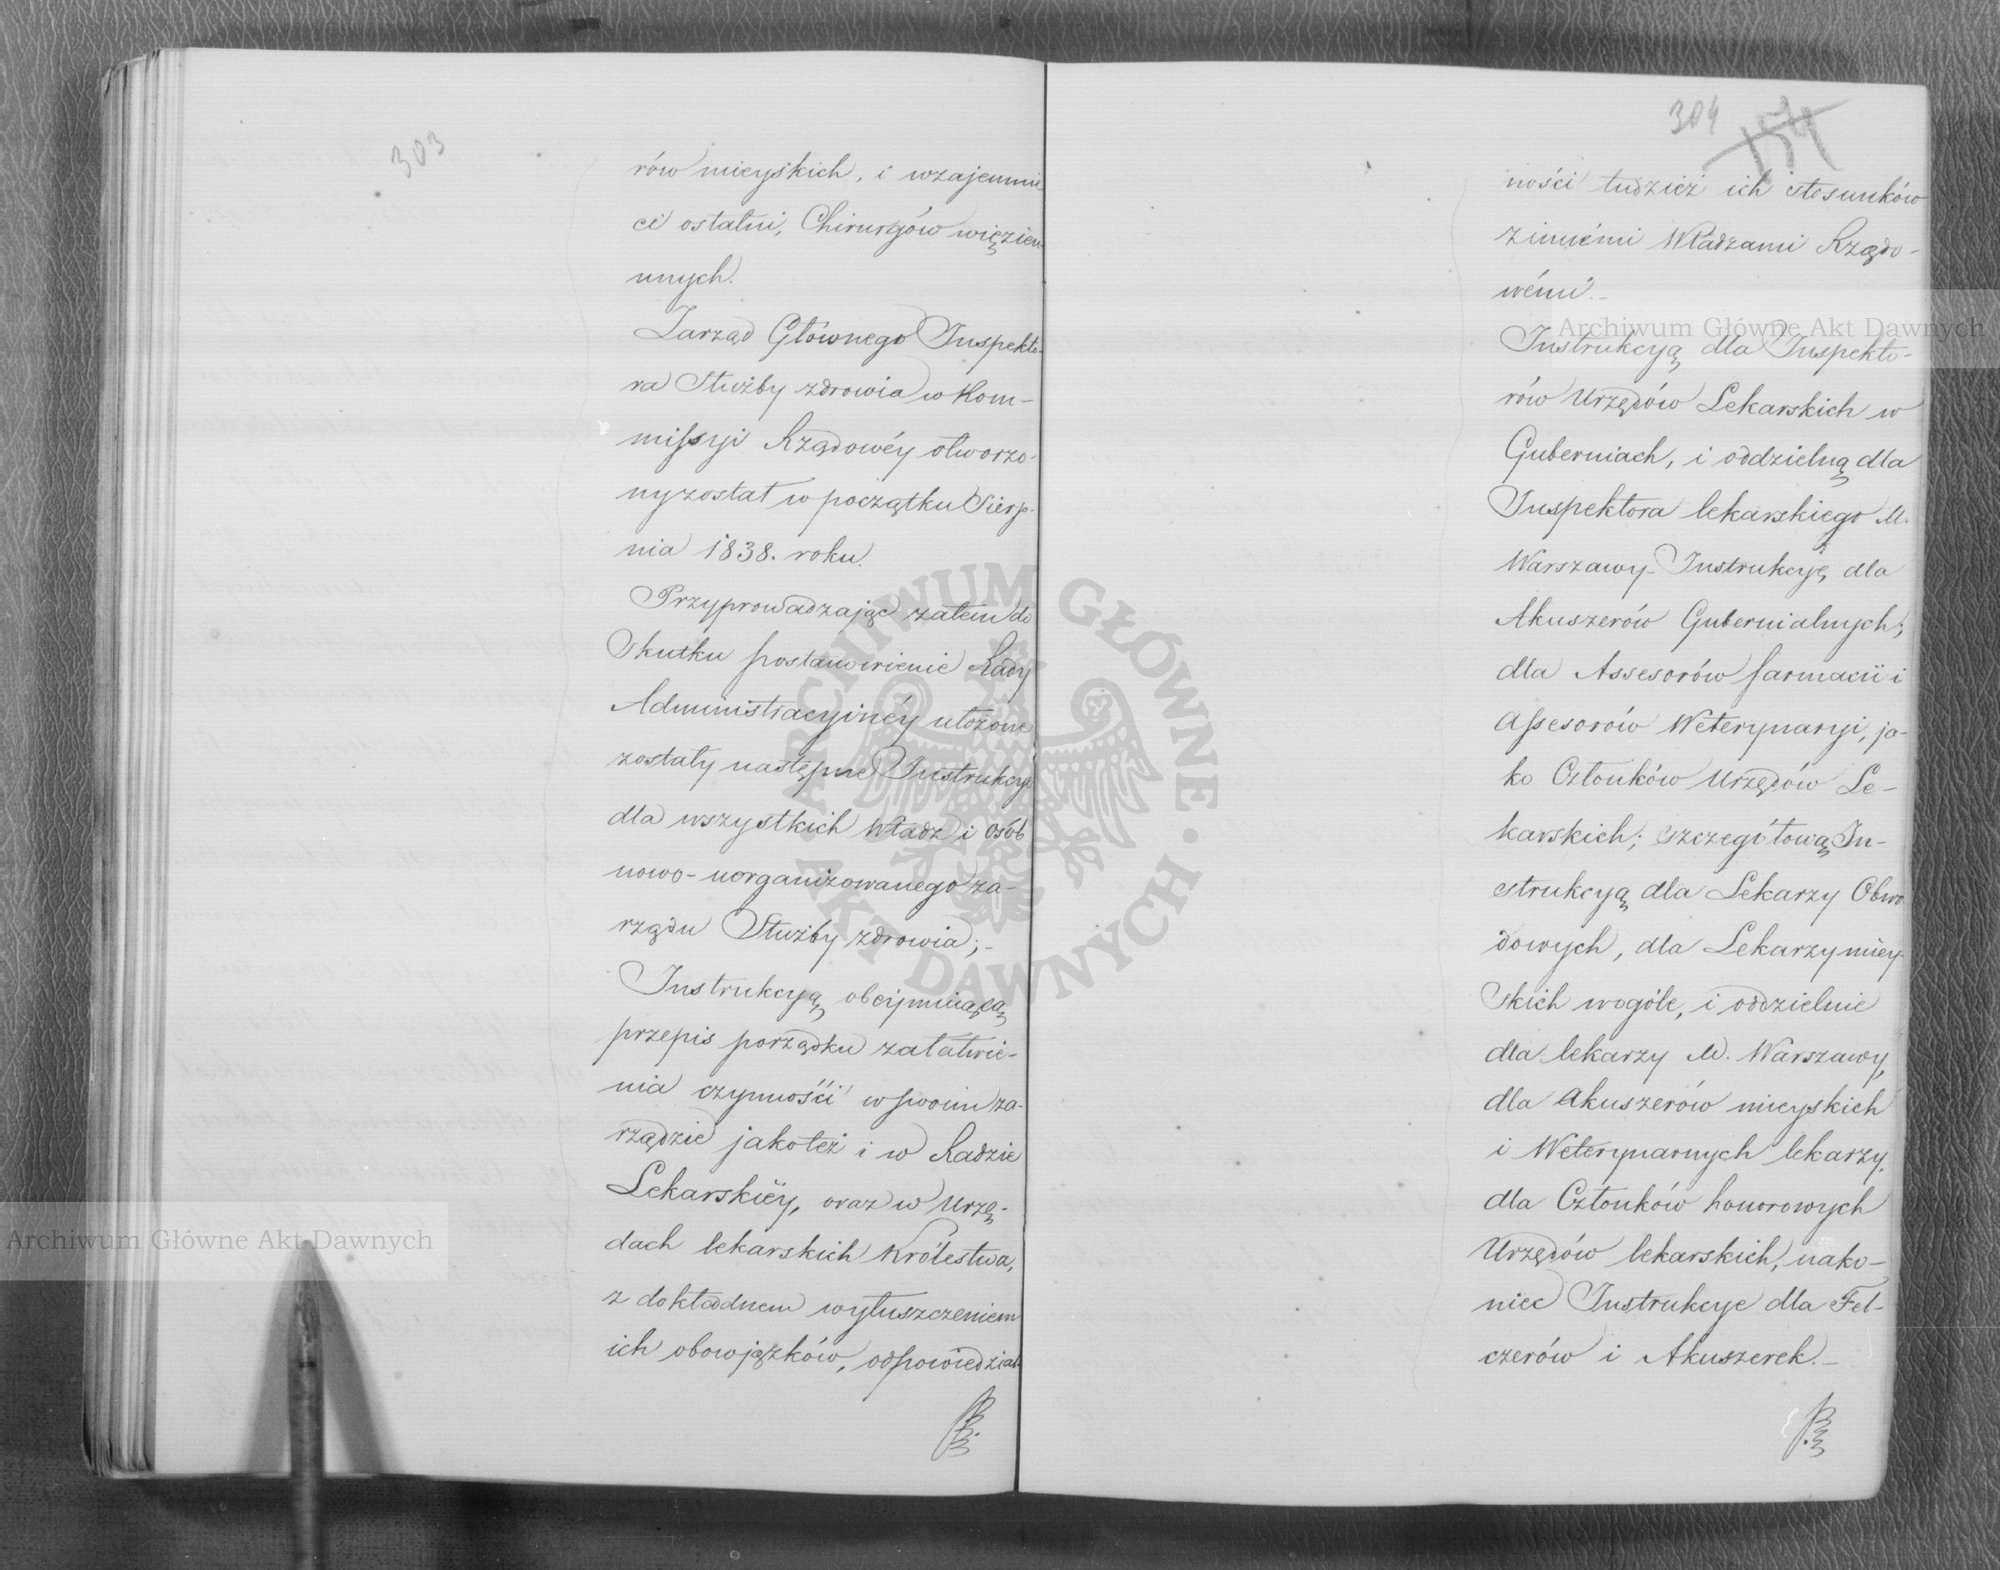 303
rów mieyskich, i wzajemnie
ci ostatni, Chirurgów więzien
nnych.
Zarząd Głównego Inspekto-
ra Służby zdrowia w Kom-
missyi Rządowéy otworzo-
ny został w początku Sierp-
nia 1838. roku.
Przyprowadzając zatem do
Skutku postanowienie Rady
Administracyinéy ułożone
zostały następne Instrukcye
dla wszystkich Władz i osób
nowo-uorganizowanego za-
rządu Służby zdrowia;-
Instrukcyą obeymuiącą
przepis porządku załatwie-
nia czynności w swoim za-
rządzie jakoteż i w Radzie
Lekarskiéy, oraz w Urzę-
dach lekarskich Królestwa,
z dokładnem wyłuszczeniem
ich obowjązków, odpowiedzial-
304
154
ności tudzież ich stosunków
zinnémi Władzami Rządo-
wémi.-
Instrukcyą dla Inspekto-
rów Urzędów Lekarskich w
Guberniach, i oddzielną dla
Inspektora lekarskiego M.
Warszawy- Instrukcyę dla
Akuszerów Gubernialnych;
dla Assesorów farmacii i
Assesorów Weterynaryi, ja-
ko Członków Urzędów Le-
karskich; szczegółową In-
strukcyą dla Lekarzy Obwo
dowych, dla Lekarzy miey-
skich wogóle, i oddzielnie
dla lekarzy M. Warszawy,
dla Akuszerów mieyskich
i Weterynarnych lekarzy,
dla Członków honorowych
Urzędów lekarskich, nako-
niec Instrukcye dla Fel-
czerów i Akuszerek.-
Archiwum Główne Akt Dawnych
Archiwum Główne Akt Dawnych
ARCHIWUM GŁÓWNE · AKT DAWNYCH ·